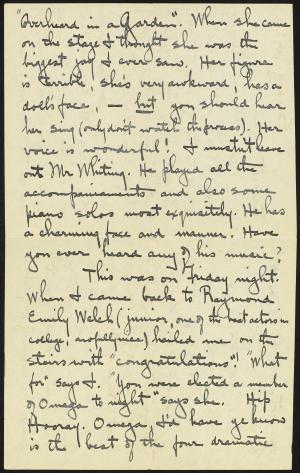 "Overheard in a Garden". When she came
on the stage I thought she was the
biggest joy I ever saw. Her figure
is terrible, she's very awkward, has a
doll's face, — but you should hear
her sing (only don't watch the process). Her
voice is wonderful! I mustn't leave
out Mr Whiting. He played all the
accompaniments and also some
piano solos most exquisitely. He has
a charming face and manner. Have
you ever heard any of his music?
This was on Friday night.
When I came back to Raymond
Emily Welch (junior, one of the best actors in
college, awfully nice) hailed me on the
stairs with "congratulations"! "What
for" says I. "You were elected a member
of Omega to night" says she. Hip
Hooray. Omega, I'd have ye know
is the best of the four dramatic